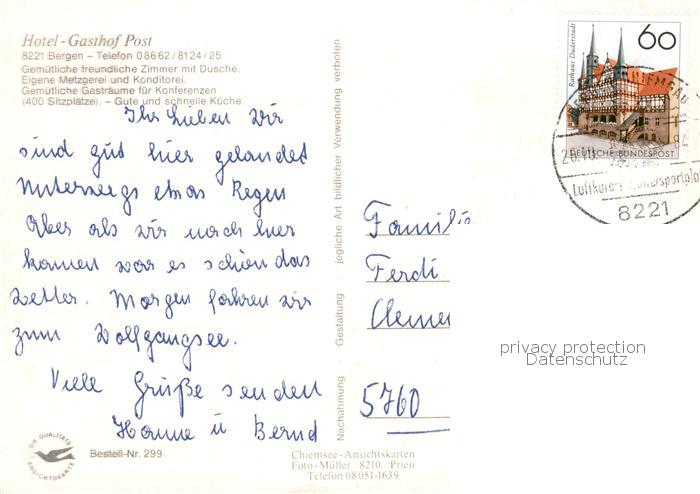 Hotel-Gasthof Post
8221 Bergen – Telefon 0 86 62 / 81 24 / 25
Gemütliche freundliche Zimmer mit Dusche.
Eigene Metzgerei und Konditorei.
Gemütliche Gasträume für Konferenzen
(400 Sitzplätze). – Gute und schnelle Küche.
Ihr Lieben wir
sind gut hier gelandet
Unterwegs etwas Regen
Aber als wir nach hier
kamen war es schön das
Wetter. Morgen fahren wir
zum Wolfgangsee.
Viele Grüße senden
Hanne u Bernd
DIE QUALITÄTS
ANSICHTSKARTE
Bestell-Nr. 299
Chiemsee-Ansichtskarten
Foto-Müller 8210 Prien
Telefon 08051-1639
Nachahmung Gestaltung jegliche Art bildlicher Verwendung verboten
60
Rathaus Duderstadt
DEUTSCHE BUNDESPOST
Luftkurort
8221
Familie
Ferdi
Cleme
5760
privacy protection
Datenschutz